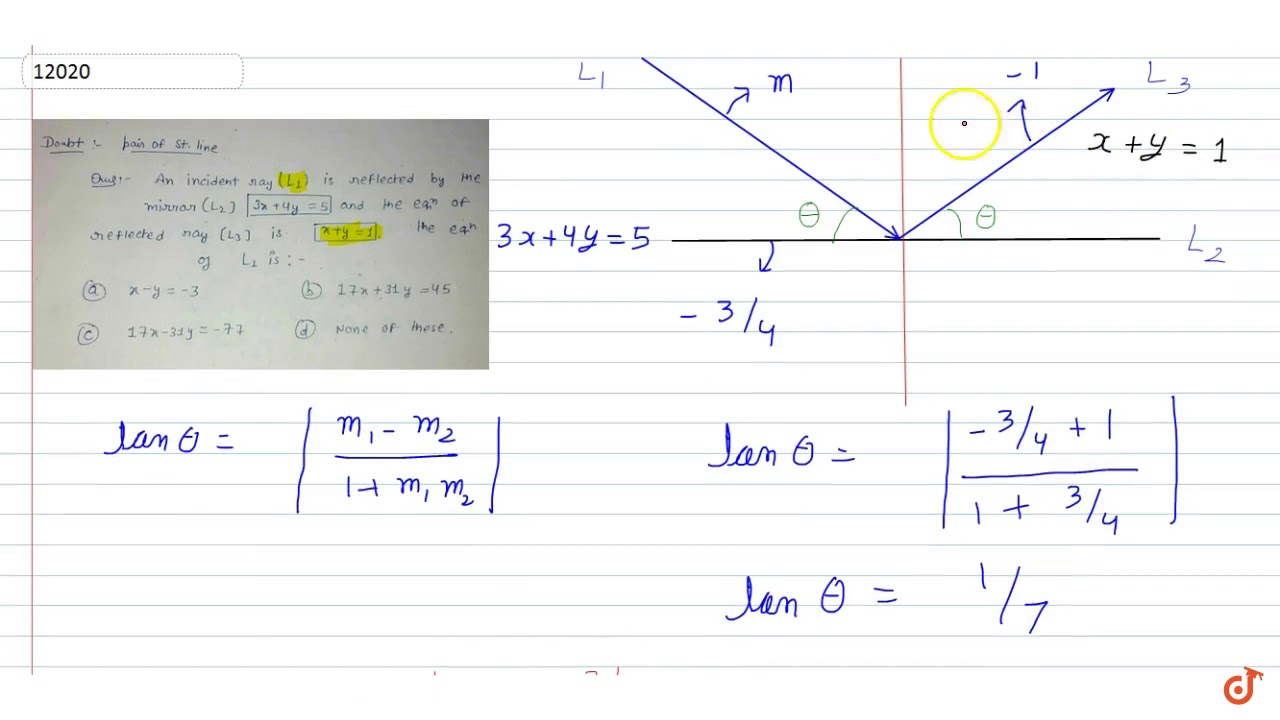 12020
Doubt :- pair of St. line
Ques:- An incident ray (L₁) is reflected by the
mirror (L₂) 3x+4y = 5 and the eqn of
reflected ray (L₃) is x+y = 1. The eqn
of L₁ is :-
(a) x-y = -3 (b) 17x+31y = 45
(c) 17x-31y = -77 (d) None of these.
L₁ m -1 L₃
x + y = 1
θ θ
3x+4y = 5 L₂
- 3/4
tan θ = | (m₁ - m₂) / (1 + m₁ m₂) |
tan θ = | (- 3/4 + 1) / (1 + 3/4) |
tan θ = 1/7